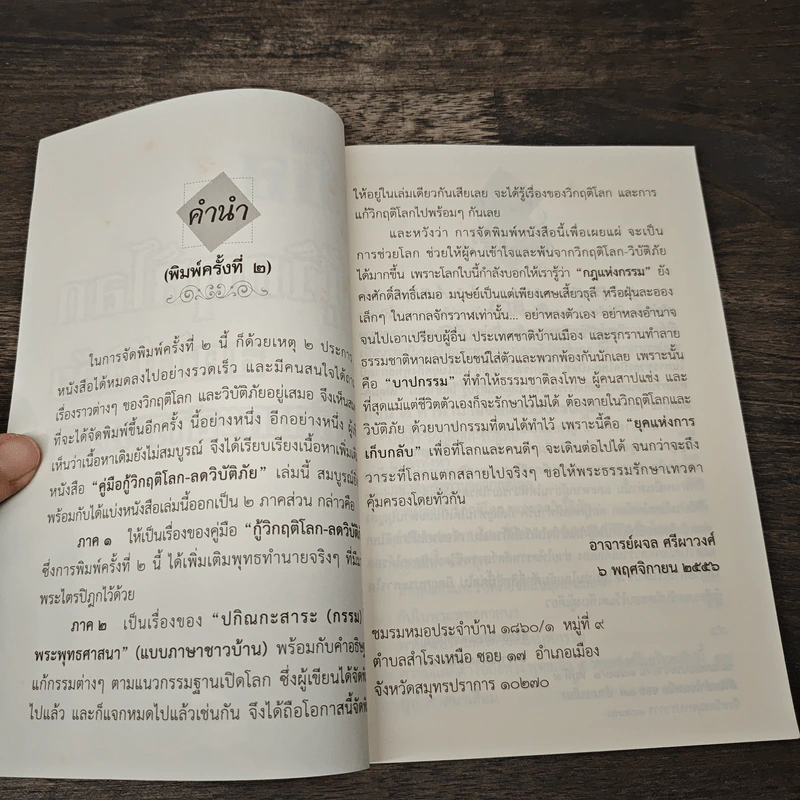 คำนำ
(พิมพ์ครั้งที่ ๒)
ในการจัดพิมพ์ครั้งที่ ๒ นี้ ก็ด้วยเหตุ ๒ ประการ
หนังสือได้หมดลงไปอย่างรวดเร็ว และมีคนสนใจได้
เรื่องราวต่างๆ ของวิกฤติโลก และวิบัติภัยอยู่เสมอ จึงเห็น
ที่จะได้จัดพิมพ์ขึ้นอีกครั้ง นี้อย่างหนึ่ง อีกอย่างหนึ่ง
เห็นว่าเนื้อหาเดิมยังไม่สมบูรณ์ จึงได้เรียบเรียงเนื้อหาเพิ่มเติม
หนังสือ “คู่มือกู้วิกฤติโลก-ลดวิบัติภัย” เล่มนี้ สมบูรณ์
พร้อมกับได้แบ่งหนังสือเล่มนี้ออกเป็น ๒ ภาคส่วน กล่าวคือ
ภาค ๑ ให้เป็นเรื่องของคู่มือ “กู้วิกฤติโลก-ลดวิบัติ
ซึ่งการพิมพ์ครั้งที่ ๒ นี้ ได้เพิ่มเติมพุทธทำนายจริงๆ ที่มี
พระไตรปิฎกไว้ด้วย
ภาค ๒ เป็นเรื่องของ “ปกิณกะสาระ (กรรม)
พระพุทธศาสนา” (แบบภาษาชาวบ้าน) พร้อมกับคำอธิษ
แก้กรรมต่างๆ ตามแนวกรรมฐานเปิดโลก ซึ่งผู้เขียนได้จัด
ไปแล้ว และก็แจกหมดไปแล้วเช่นกัน จึงได้ถือโอกาสนี้จัด
ให้อยู่ในเล่มเดียวกันเสียเลย จะได้รู้เรื่องของวิกฤติโลก และการ
แก้วิกฤติโลกไปพร้อมๆ กันเลย
และหวังว่า การจัดพิมพ์หนังสือนี้เพื่อเผยแผ่ จะเป็น
การช่วยโลก ช่วยให้ผู้คนเข้าใจและพ้นจากวิกฤติโลก-วิบัติภัย
ได้มากขึ้น เพราะโลกใบนี้กำลังบอกให้เรารู้ว่า “กฎแห่งกรรม” ยัง
คงศักดิ์สิทธิ์เสมอ มนุษย์เป็นแต่เพียงเศษเสี้ยวธุลี หรือฝุ่นละออง
เล็กๆ ในสากลจักรวาฬเท่านั้น... อย่าหลงตัวเอง อย่าหลงอำนาจ
จนไปเอาเปรียบผู้อื่น ประเทศชาติบ้านเมือง และรุกรานทำลาย
ธรรมชาติหาผลประโยชน์ใส่ตัวและพวกพ้องกันนักเลย เพราะนั้น
คือ “บาปกรรม” ที่ทำให้ธรรมชาติลงโทษ ผู้คนสาปแช่ง และ
ที่สุดแม้แต่ชีวิตตัวเองก็จะรักษาไว้ไม่ได้ ต้องตายในวิกฤติโลกและ
วิบัติภัย ด้วยบาปกรรมที่ตนได้ทำไว้ เพราะนี้คือ “ยุคแห่งการ
เก็บกลับ” เพื่อที่โลกและคนดีๆ จะเดินต่อไปได้ จนกว่าจะถึง
วาระที่โลกแตกสลายไปจริงๆ ขอให้พระธรรมรักษาเทวดา
คุ้มครองโดยทั่วกัน
อาจารย์ผจล ศรีผาวงศ์
๖ พฤศจิกายน ๒๕๕๖
ชมรมหมอประจำบ้าน ๑๘๖๐/๑ หมู่ที่ ๙
ตำบลสำโรงเหนือ ซอย ๑๗ อำเภอเมือง
จังหวัดสมุทรปราการ ๑๐๒๗๐